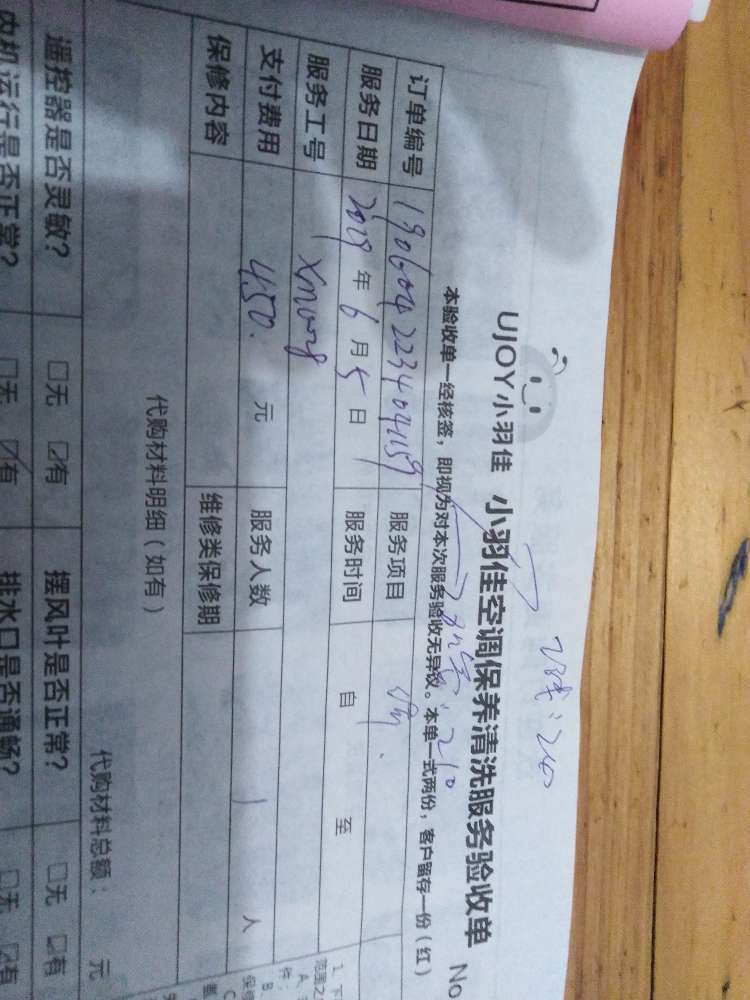 UJOY小羽佳 小羽佳空调保养清洗服务验收单 No
本验收单一经核签，即视为对本次服务验收无异议。本单一式两份，客户留存一份（红）
订单编号 190604223404159 服务项目
服务日期 2019年6月5日 服务时间 自 至
服务工号 Xm0028
支付费用 450. 元 服务人数 1 人
保修内容 维修类保修期
代购材料明细（如有） 代购材料总额： 元
遥控器是否灵敏? □无 ☑有 摆风叶是否正常? □无 ☑有
内机运行是否正常? □无 ☑有 排水口是否通畅? □无 ☑有